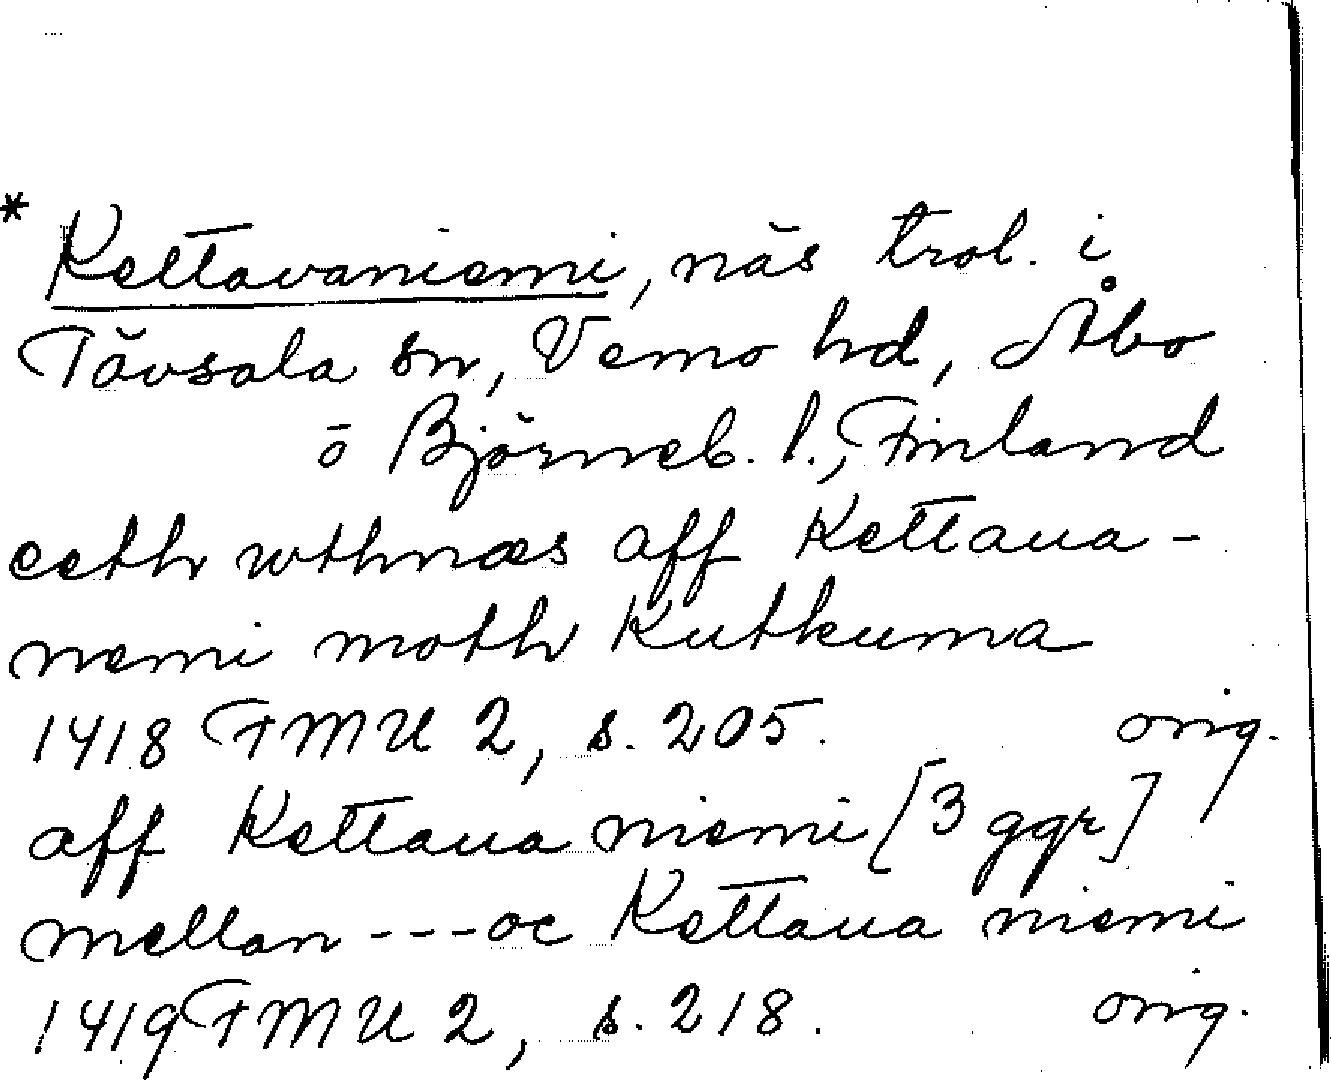 * Kettavaniemi, näs trol. i
Tövsala sn, Vemo hd, Åbo
o Björneb. l., Finland
eeth wthnæs aff Kettaua-
nemi moth Kutkuma
1418 FMU 2, s. 205. orig.
aff Kettaua niemi [3 ggr]
mellan --- oc Kettaua niemi
1419 FMU 2, s. 218. orig.